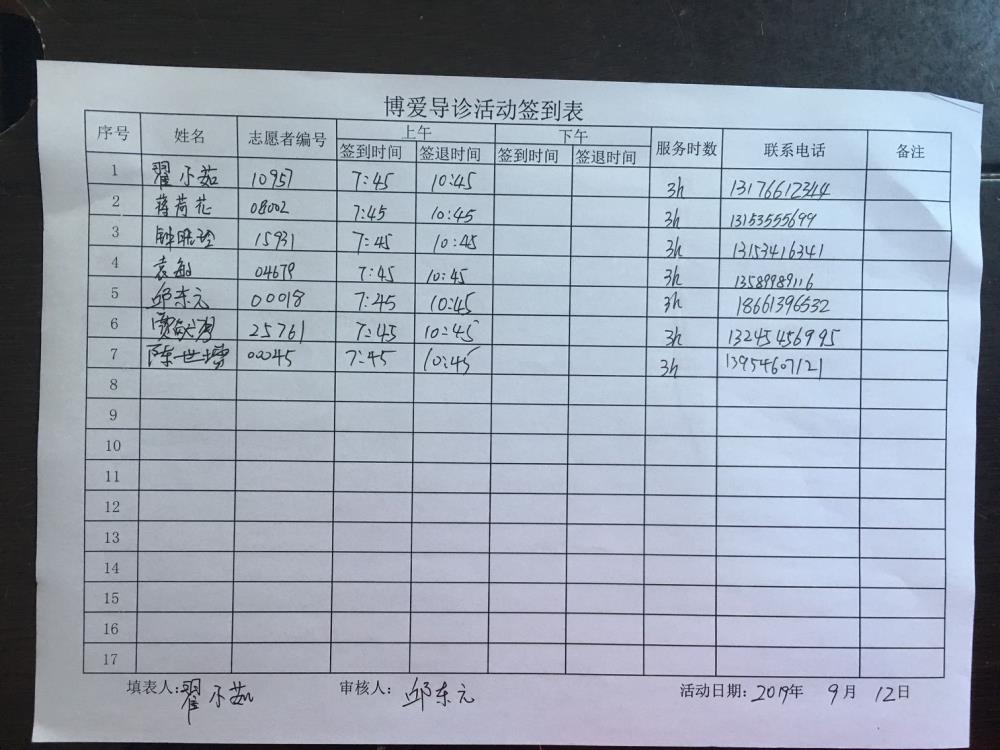 博爱导诊活动签到表
序号 姓名 志愿者编号 上午 下午 服务时数 联系电话 备注
签到时间 签退时间 签到时间 签退时间
1 翟小茹 10957 7:45 10:45 3h 13176612344
2 蒋荷花 08002 7:45 10:45 3h 13153555699
3 15931 7:45 10:45 3h 13153416341
4 袁敏 04679 7:45 10:45 3h 13589989116
5 邱东元 00018 7:45 10:45 3h 18661396532
6 25761 7:45 10:45 3h 13245456995
7 陈世增 00045 7:45 10:45 3h 13954607121
8
9
10
11
12
13
14
15
16
17
填表人:翟小茹 审核人:邱东元 活动日期:2019年 9月 12日